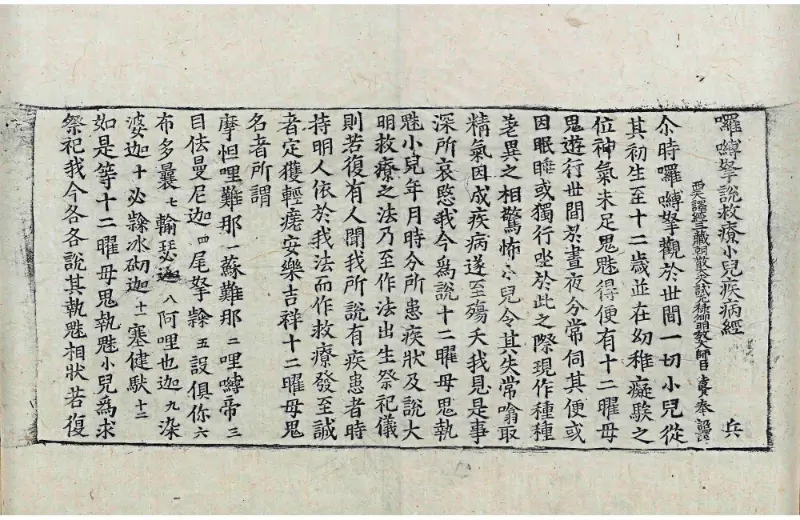 囉嚩拏說救療小兒疾病經 兵
西天譯經三藏朝散大夫試光祿卿明教大師臣 奉 詔譯
尒時囉嚩拏觀於世間一切小兒從
其初生至十二歲並在幼稚癡騃之
位神氣未足鬼魅得便有十二曜母
鬼遊行世間於晝夜分常伺其便或
因眠睡或獨行坐於此之際現作種種
差異之相驚怖小兒令其失常噏取
精氣因成疾病遂至殤夭我見是事
深所哀愍我今爲說十二曜母鬼執
魅小兒年月時分所患疾狀及說大
明救療之法乃至作法出生祭祀儀
則若復有人聞我所說有疾患者時
持明人依於我法而作救療發至誠
者定獲輕瘥安樂吉祥十二曜母鬼
名者所謂
摩怛哩難那一蘇難那二哩嚩帝三
目佉曼尼迦四尾拏隸五設俱你六
布多曩七輸瑟迦八阿哩也迦九染
婆迦十必隸冰砌迦十一塞健馱十二
如是等十二曜母鬼執魅小兒爲求
祭祀我今各各說其執魅相狀若復